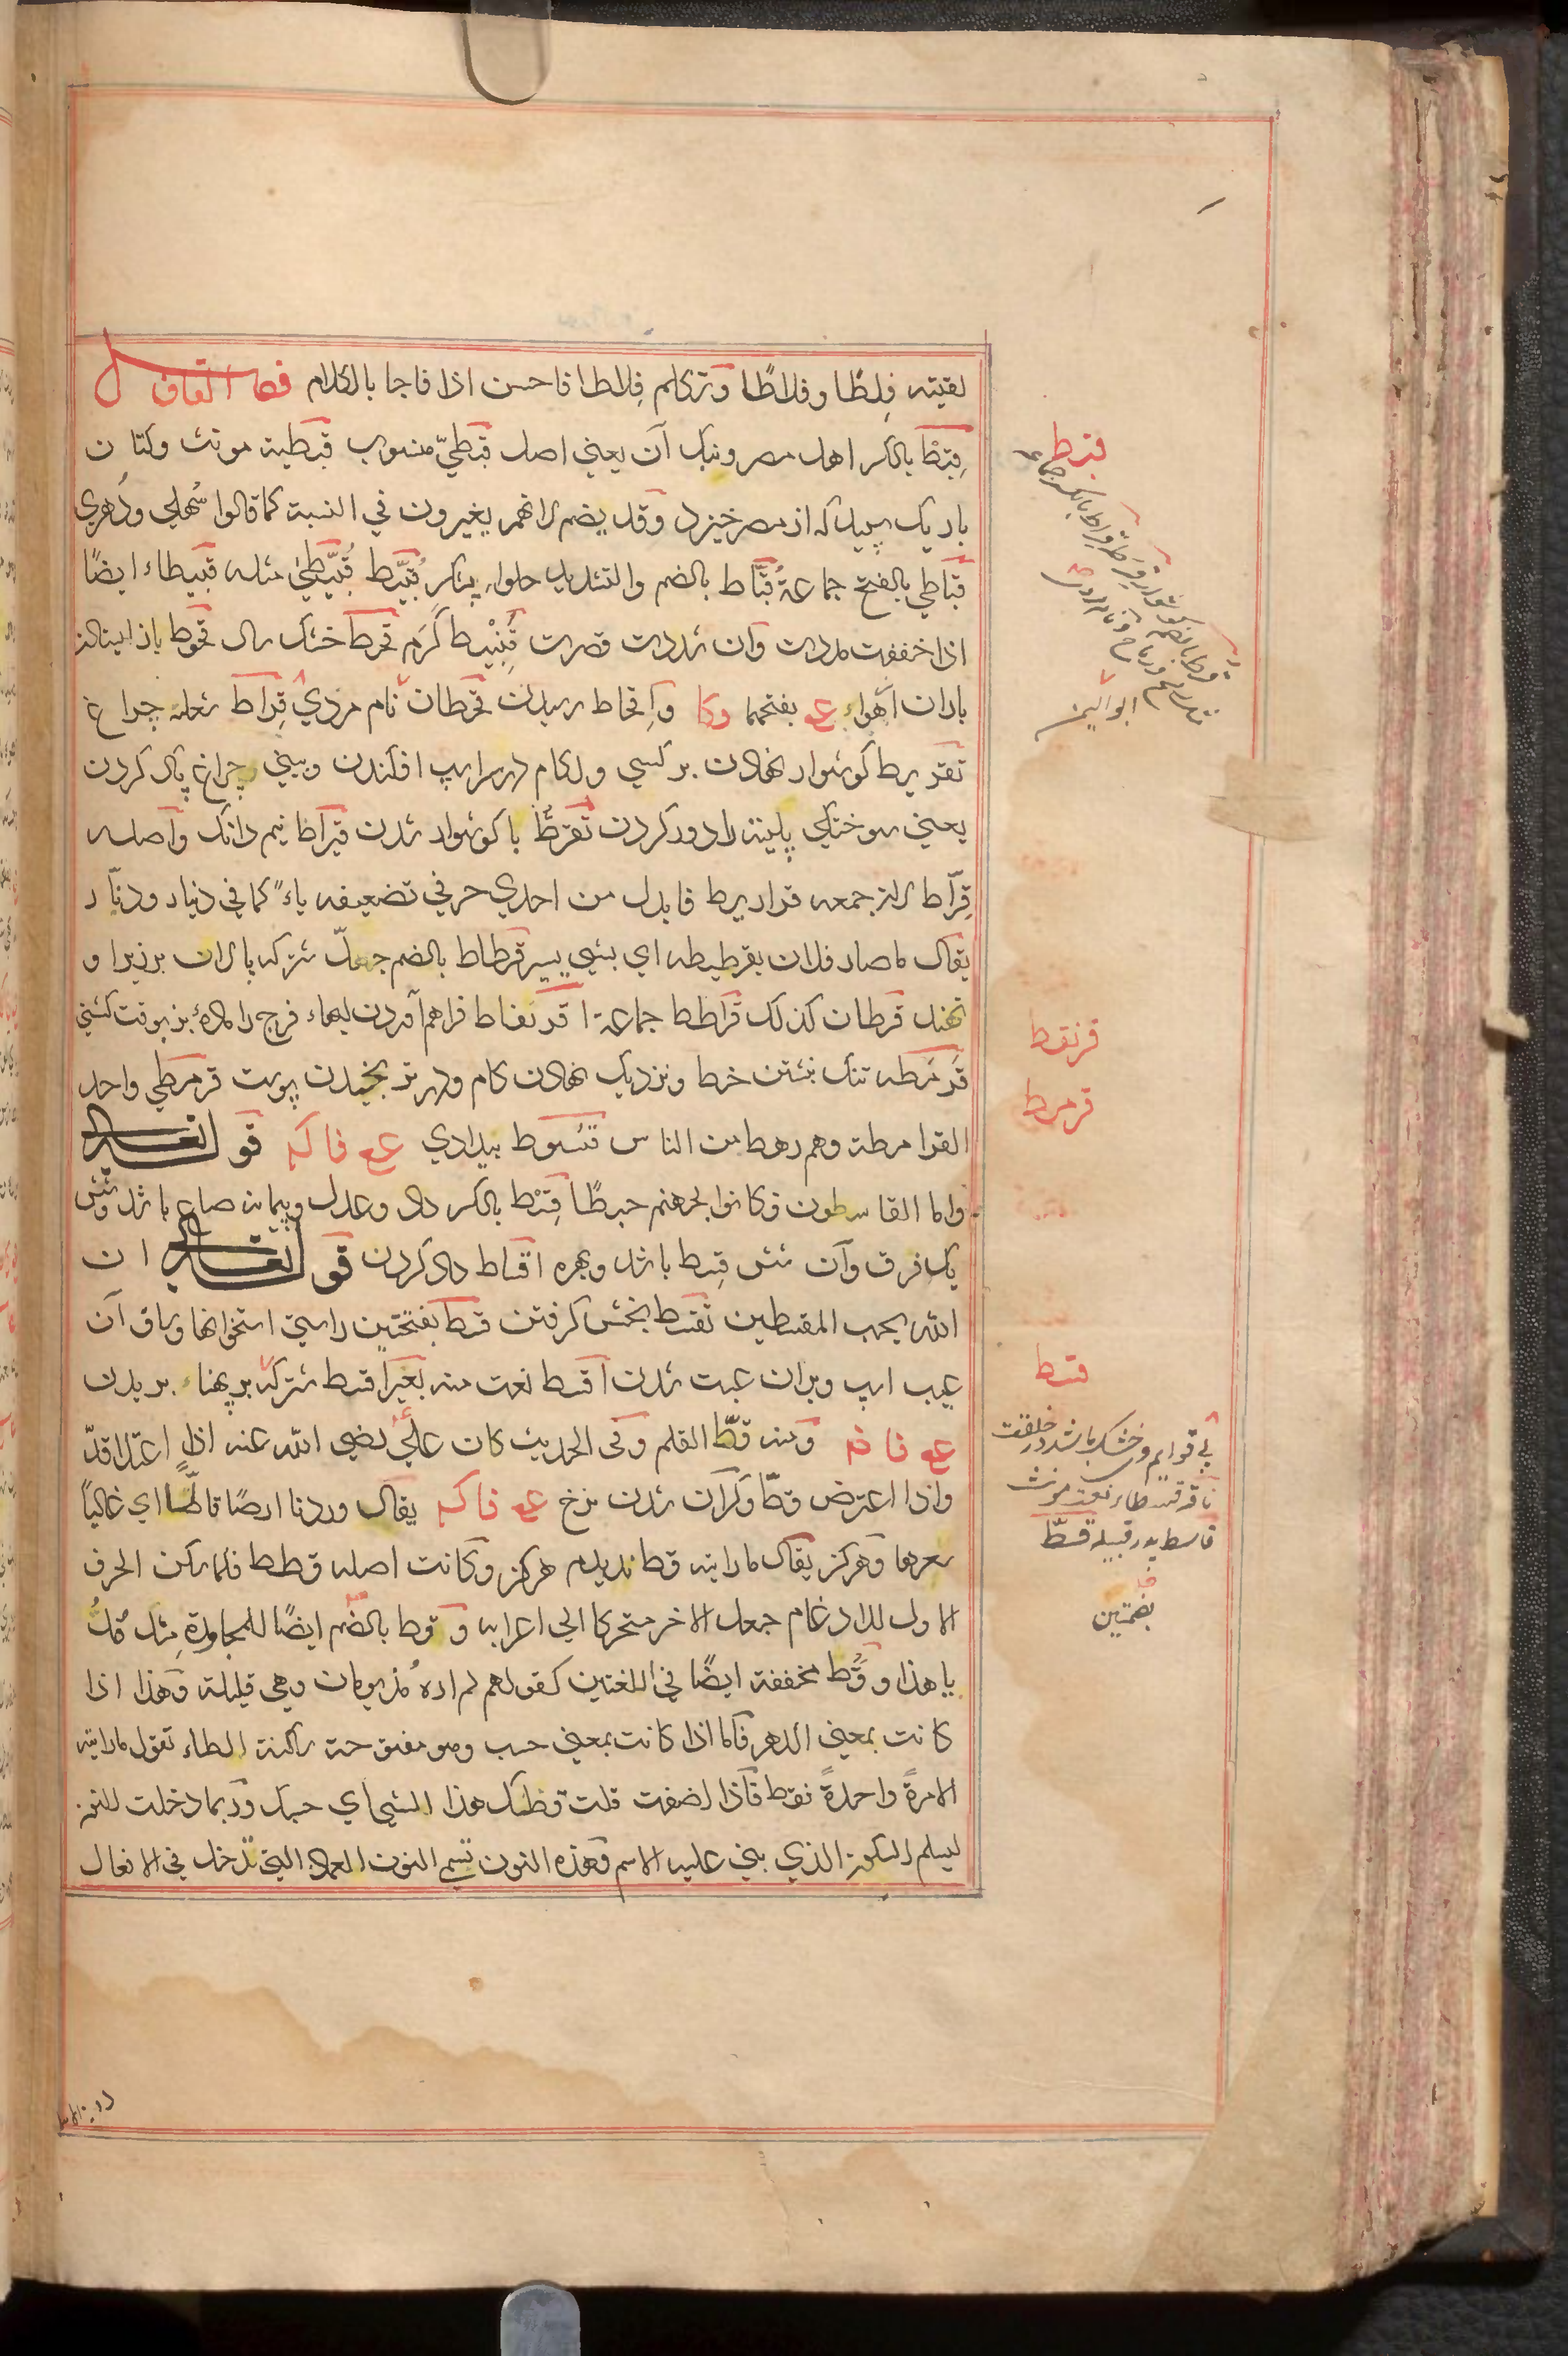 لقيته فِلطا وفلاطًا وتركلم فِلاطا فاحسن اذا فاجا بالكلام فصل القاف
قِبط بالكسر اهل مصر وبنك آن يعني اصل قبطيّ منسوب قبطية مونث وكتان
باريك سپيد كه از مصر خيزد وقد يضم لانهم يغيرون في النسبة كما قالوا سُهلي ودُهري
قباطي بالفتح جماعة قُبّاط بالضم والتشديد حلواء پشكر قُبَّيط قُبَّيطيٰ مثله قبيطاء ايضًا
اذا خففت مددت وان شددت قصرت قُنَّبيط كرم قحط خشك سال قحوط باز ايستادن
باران اهواء ع بفتحهما وكا واِقحاط رسيدن قحطان نام مردي قِراط شعلهٔ چراغ
تقريط كوشوار نهادن بر كسي ولكام در سر اسپ افكندن وبيني چراغ پاك كردن
يعني سوختكي پليته را دور كردن تَقرُّط با كوشوار شدن قيراط نيم دانك واصله
قِرّاط لان جمعه قراريط فابدل من احدي حرفي تضعيفه ياءً كما في دينار ودنّار
يقال ما صاد فلان بقرطيطه اي بشي يسير قرطاط بالضم جهل شتر كه پالان بر زبرا و
نهند قرطان كذلك قراطط جماعة اقرنفاط فراهم آمدن لبهاء فرج را ماده بز بوقت كشني
قَرمَطه تنك نبشتن خط ونزديك نهادن كام ودر ترنجيدن پوست قرمطي واحد
القرامطة وهم رهط من الناس قسوط بيدادي ع فا كه قوله تعالي
واما القاسطون فكانوا لجهنم حطبًا قِسْط بالكسر داد وعدل وپيمانه صاع باشد وشش
يك فرق وآن شش قسط باشد وبهره اقساط داد كردن قوله تعالي ان
الله يحب المقسطين تقسّط بخش كرفتن قسط بفتحتين راستي استخوانها وساق آن
عيب اسپ وبران عيب شدن اقسط نعت منه بعير اقسط شتر كه بر پهناء بريدن
ع فا ضم ومنه قطّ القلم وفي الحديث كان علي رضي الله عنه اذا اعتلا قدّ
واذا اعترض قطّا وكران شدن نرخ ع فا كه يقال وردنا ارضًا قاطًّا اي غاليًا
سعرها وهركز يقال ما رايته قط نديدم هركز وكانت اصله قطط فلما سكن الحرف
الاول للادغام جعل الاخر متحركا الي اعرابه وقُوط بالضم ايضًا للمجاورة مثل مُدُّ
يا هذا وقَط مخففة ايضًا في اللغتين كقولهم لم اره مُذ يومان وهي قليلة وهذا اذا
كانت بمعني الدهر فاما اذا كانت بمعني حسب وهو مفتوحة ساكنة الطاء تقول ما رايته
الا مرةً واحدةً فقط فاذا اضفت قلت قطك هذا الشي اي حسبك وربما دخلت للنون
ليسلم السكون الذي بني عليه الاسم وهذه النون تسمي النون العماد التي تدخل في الافعال
قبط
ابو اليمن
قرنفط
قرمط
قسط
پي قوايم وخشك باشد در خلقت
ناقه قسطاء نعت مونث
قاسط پدر قبيله قسطّ
بضمتين